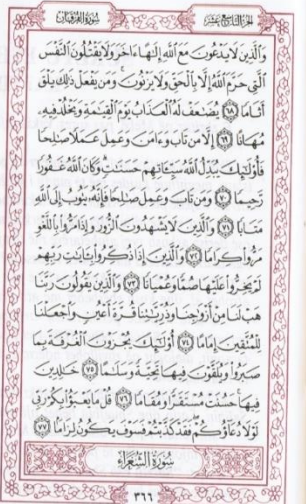 الجزء التاسع عشر سورة الفرقان
وَٱلَّذِينَ لَا يَدْعُونَ مَعَ ٱللَّهِ إِلَٰهًا ءَاخَرَ وَلَا يَقْتُلُونَ ٱلنَّفْسَ
ٱلَّتِي حَرَّمَ ٱللَّهُ إِلَّا بِٱلْحَقِّ وَلَا يَزْنُونَ ۚ وَمَن يَفْعَلْ ذَٰلِكَ يَلْقَ
أَثَامًا ٦٨ يُضَٰعَفْ لَهُ ٱلْعَذَابُ يَوْمَ ٱلْقِيَٰمَةِ وَيَخْلُدْ فِيهِۦ
مُهَانًا ٦٩ إِلَّا مَن تَابَ وَءَامَنَ وَعَمِلَ عَمَلًا صَٰلِحًا
فَأُو۟لَٰٓئِكَ يُبَدِّلُ ٱللَّهُ سَيِّـَٔاتِهِمْ حَسَنَٰتٍ ۗ وَكَانَ ٱللَّهُ غَفُورًا
رَّحِيمًا ٧٠ وَمَن تَابَ وَعَمِلَ صَٰلِحًا فَإِنَّهُۥ يَتُوبُ إِلَى ٱللَّهِ
مَتَابًا ٧١ وَٱلَّذِينَ لَا يَشْهَدُونَ ٱلزُّورَ وَإِذَا مَرُّوا۟ بِٱللَّغْوِ
مَرُّوا۟ كِرَامًا ٧٢ وَٱلَّذِينَ إِذَا ذُكِّرُوا۟ بِـَٔايَٰتِ رَبِّهِمْ
لَمْ يَخِرُّوا۟ عَلَيْهَا صُمًّا وَعُمْيَانًا ٧٣ وَٱلَّذِينَ يَقُولُونَ رَبَّنَا
هَبْ لَنَا مِنْ أَزْوَٰجِنَا وَذُرِّيَّٰتِنَا قُرَّةَ أَعْيُنٍ وَٱجْعَلْنَا
لِلْمُتَّقِينَ إِمَامًا ٧٤ أُو۟لَٰٓئِكَ يُجْزَوْنَ ٱلْغُرْفَةَ بِمَا
صَبَرُوا۟ وَيُلَقَّوْنَ فِيهَا تَحِيَّةً وَسَلَٰمًا ٧٥ خَٰلِدِينَ
فِيهَا ۚ حَسُنَتْ مُسْتَقَرًّا وَمُقَامًا ٧٦ قُلْ مَا يَعْبَؤُا۟ بِكُمْ رَبِّي
لَوْلَا دُعَآؤُكُمْ ۖ فَقَدْ كَذَّبْتُمْ فَسَوْفَ يَكُونُ لِزَامًۢا ٧٧
سورة الشعراء
٣٦٦